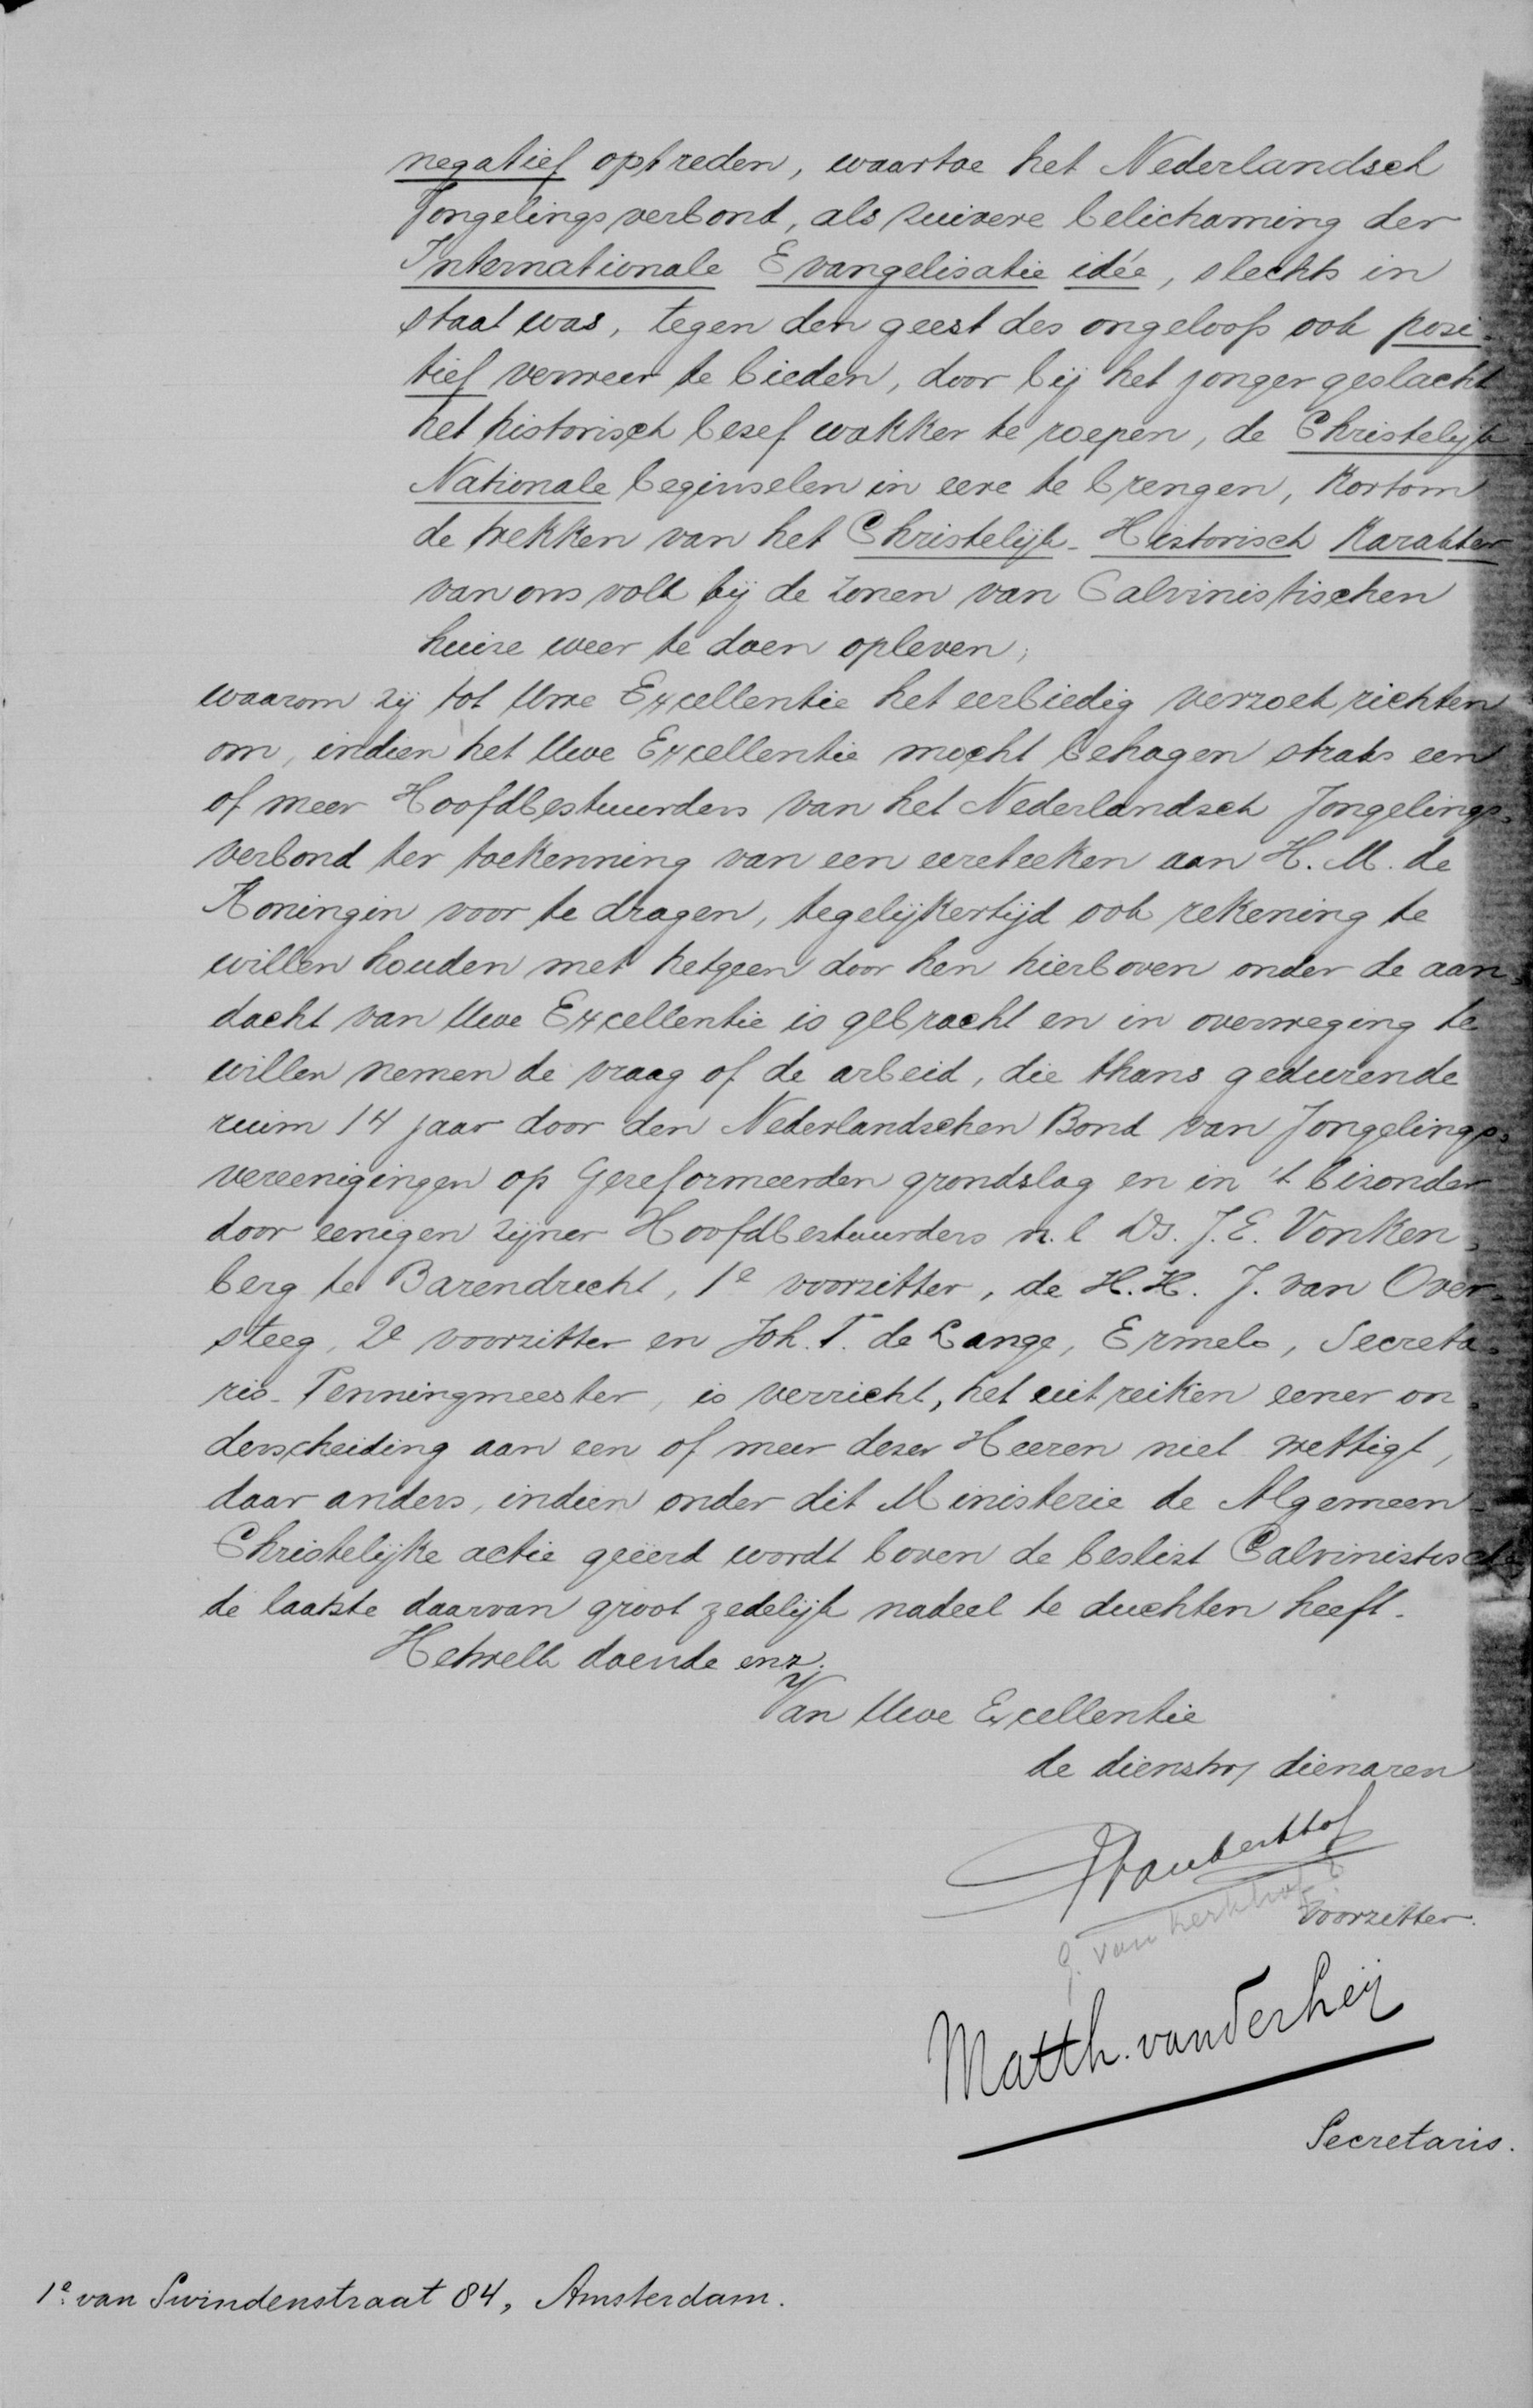 negatief optreden, waartoe het Nederlandsch
Jongelingsverbond, als zuivere belichaming der
Internationale Evangelisatie idée, slechts in
staat was, tegen den geest des ongeloofs ook posi-
tief verweer te bieden, door bij het jonger geslacht
het historisch besef wakker te roepen, de Christelijk-
Nationale beginselen in eere te brengen, kortom
de trekken van het Christelijk-Historisch karakter
van ons volk bij de zonen van Calvinistischen
huize weer te doen opleven;
waarom zij tot Uwe Excellentie het eerbiedig verzoek richten
om, indien het Uwe Excellentie mocht behagen straks een
of meer Hoofdbestuurders van het Nederlandsch Jongelings-
verbond ter toekenning van een eereteeken aan H. M. de
Koningin voor te dragen, tegelijkertijd ook rekening te
willen houden met hetgeen door hen hierboven onder de aan-
dacht van Uwe Excellentie is gebracht en in overweging te
willen nemen de vraag of de arbeid, die thans gedurende
ruim 14 jaar door den Nederlandschen Bond van Jongelings-
vereenigingen op Gereformeerden grondslag en in 't bizonder
door eenigen zijner Hoofdbestuurders n.l. Ds. J. E. Vonken-
berg te Barendrecht, 1e voorzitter, de H.H. J. van Over-
steeg, 2e voorzitter en Joh. T. de Lange, Ermelo, Secreta-
ris-Penningmeester, is verricht, het uitreiken eener on-
derscheiding aan een of meer dezer Heeren niet wettigt,
daar anders, indien onder dit Ministerie de Algemeen-
Christelijke actie geëerd wordt boven de beslist Calvinistische
de laatste daarvan groot zedelijk nadeel te duchten heeft.
Hetwelk doende enz.
Van Uwe Excellentie
de dienstw dienaren
G. van Kerkhof?
Voorzitter.
Matth. van der Heij
Secretaris.
1e van Swindenstraat 84, Amsterdam.